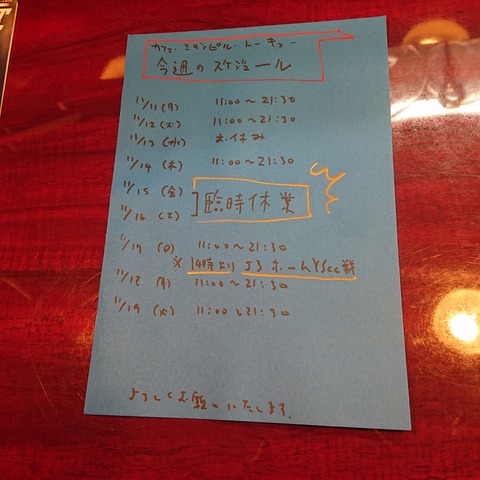 カフェ・ミデンピル・トーキョー
今週のスケジュール
11/11(月) 11:00〜21:30
11/12(火) 11:00〜21:30
11/13(水) お休み
11/14(木) 11:00〜21:30
11/15(金)
臨時休業
11/16(土)
11/17(日) 11:00〜21:30
※14時より J3 ホームYSCC戦
11/18(月) 11:00〜21:30
11/19(火) 11:00〜21:30
よろしくお願いいたします。